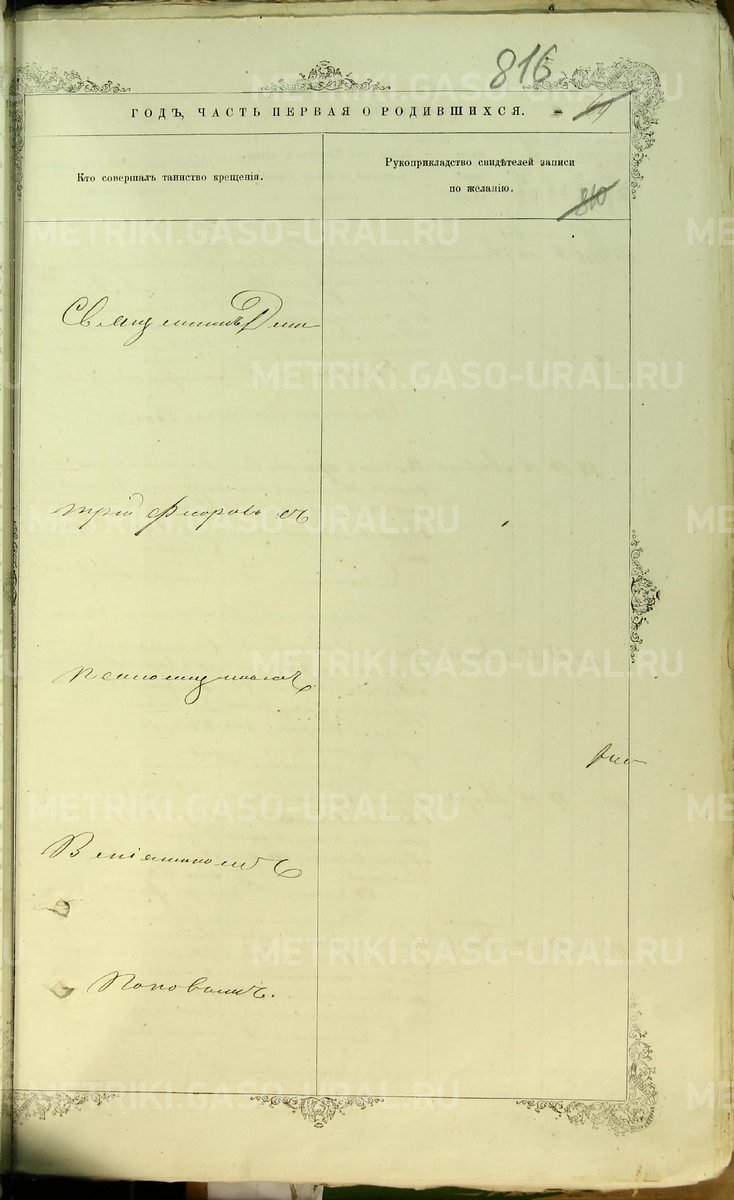 816
ГОДЪ, ЧАСТЬ ПЕРВАЯ О РОДИВШИХСЯ.
Кто совершалъ таинство крещенія.
Рукоприкладство свидѣтелей записи
по желанію.
810
Священникъ Дми
трій Ѳедоровъ съ
псаломщикомъ
Веніаминомъ
Поповымъ.
METRIKI.GASO-URAL.RU